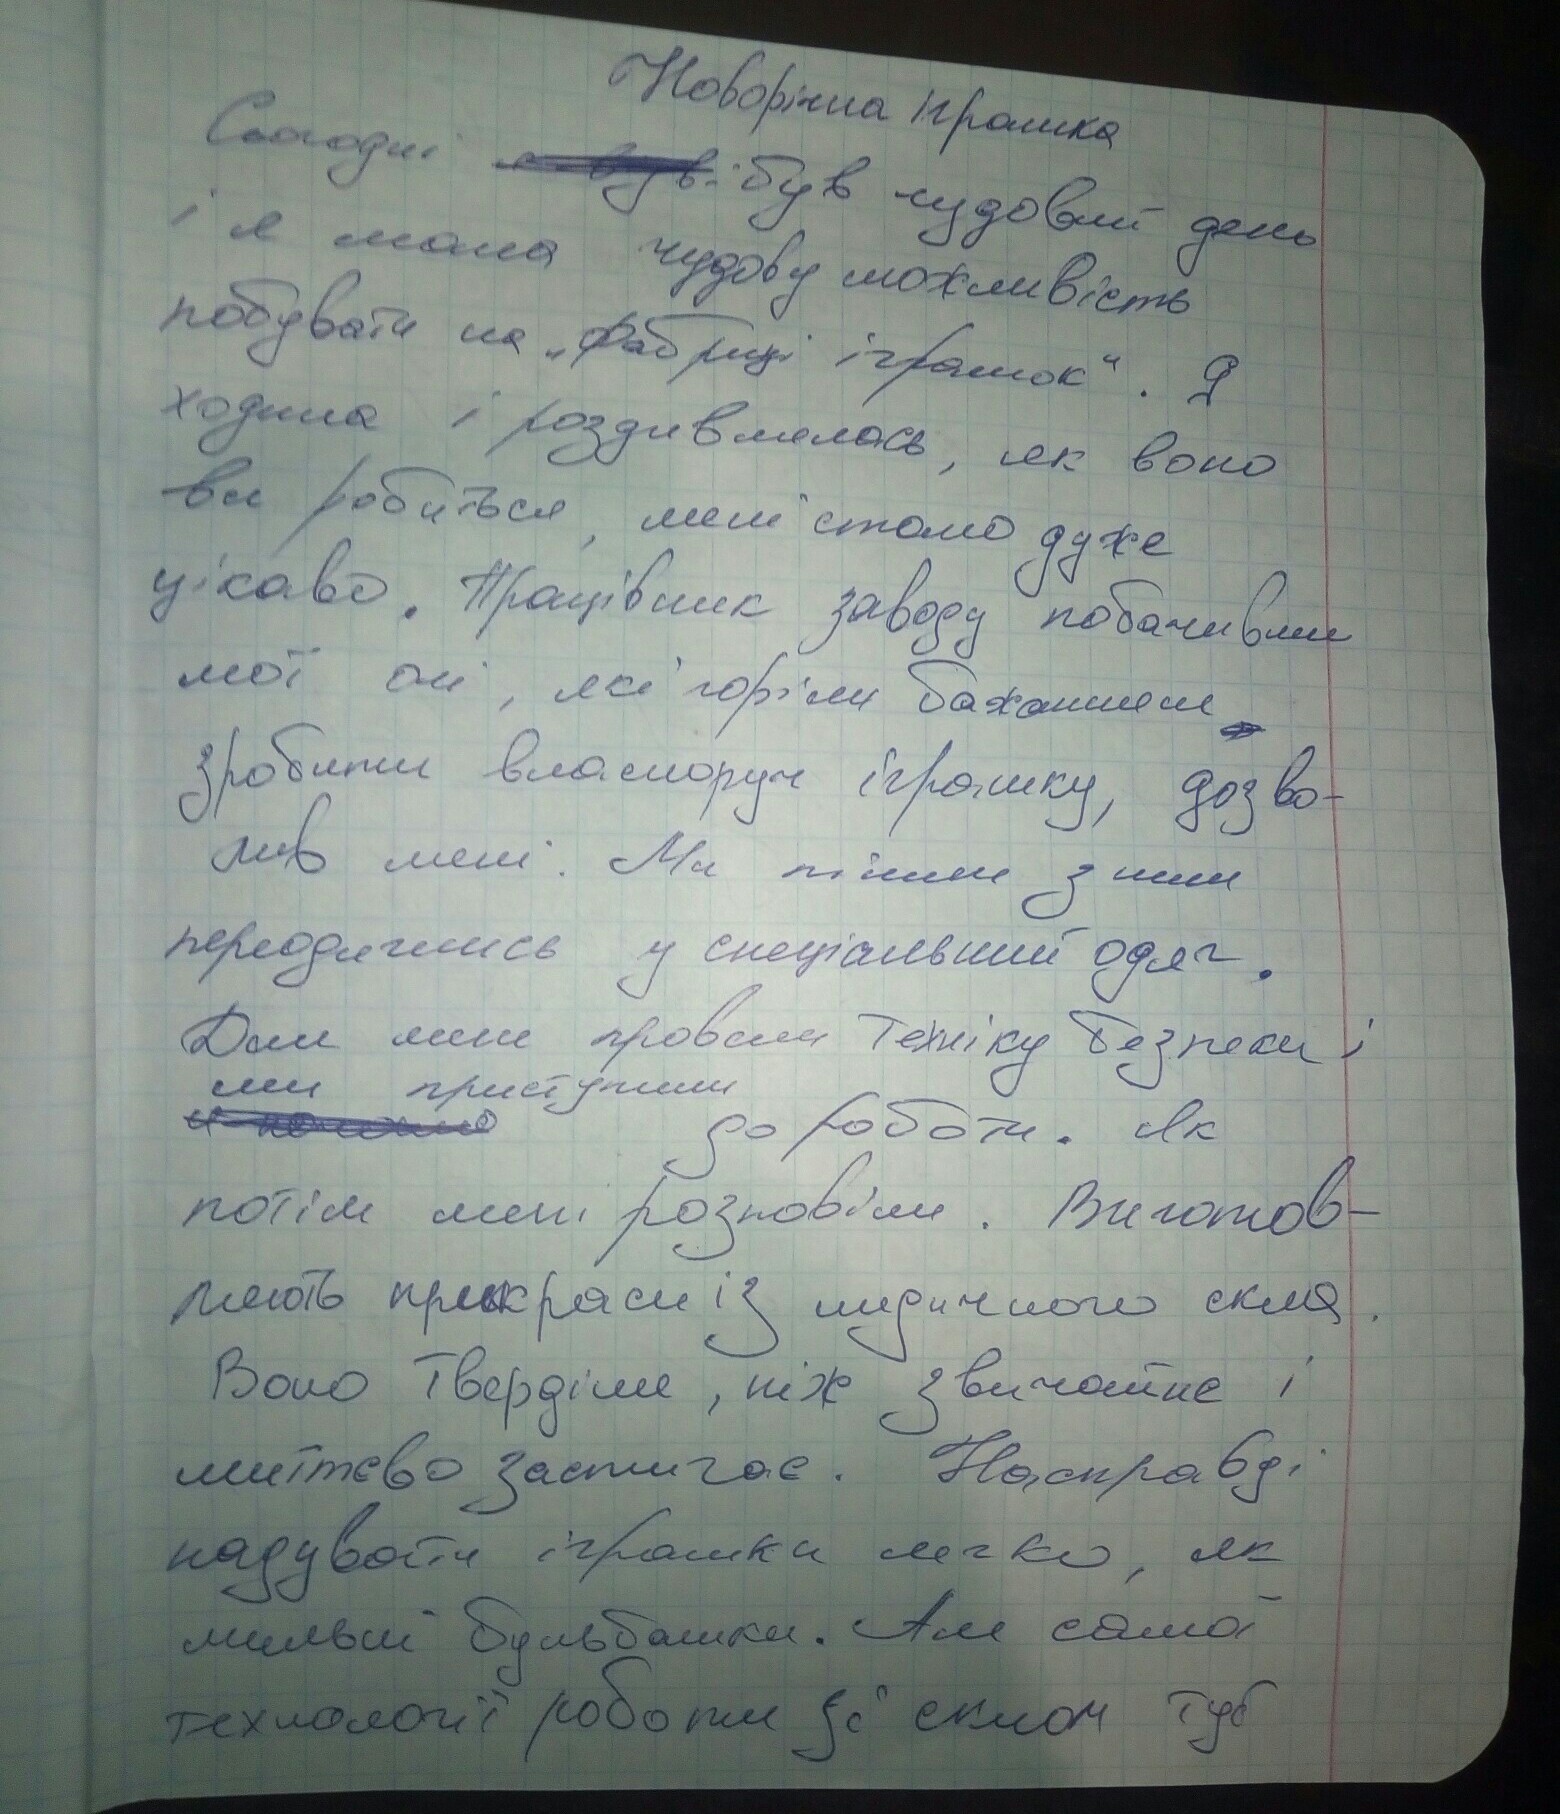 Новорічна іграшка
Сьогодні був чудовий день
і я мала чудову можливість
побувати на „Фабриці іграшок“. Я
ходила і роздивлялась, як воно
ви робиться, мені стало дуже
цікаво. Працівник заводу побачивши
мої очі, які горіли бажанням
зробити власноруч іграшку, дозво-
лив мені. Ми пішли з ним
переодяглись у спеціальний одяг.
Далі мені провели техніку безпеки і
ми приступили
до роботи. Як
потім мені розповіли. Виготов-
ляють прикраси із медичного скла.
Воно твердіше, ніж звичайне і
миттєво застигає. Насправді
надувати іграшки легко, як
мильні бульбашки. Але самої
технології роботи зі склом туб